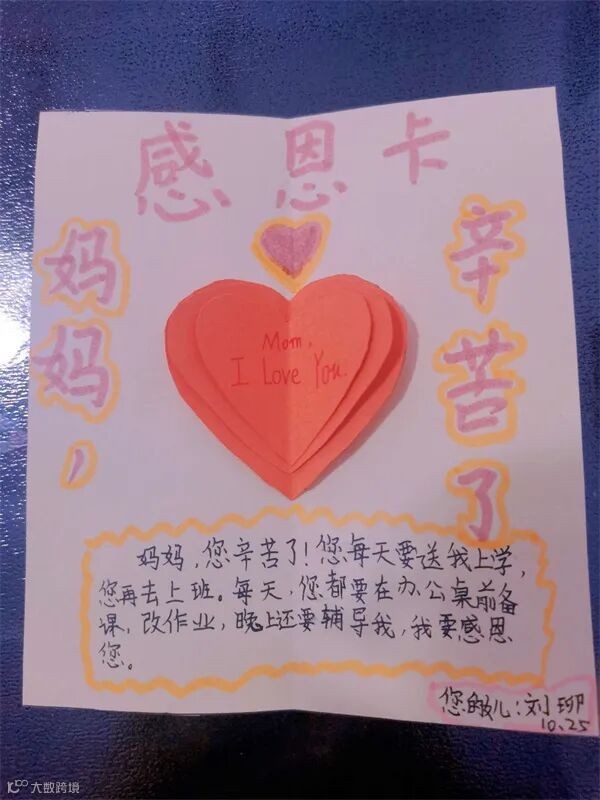 感恩卡
妈妈，
辛苦了
Mom,
I Love You.
妈妈，您辛苦了！您每天要送我上学，
您再去上班。每天，您都要在办公桌前备
课，改作业，晚上还要辅导我，我要感恩
您。
您的女儿：刘
10.25
大数跨境